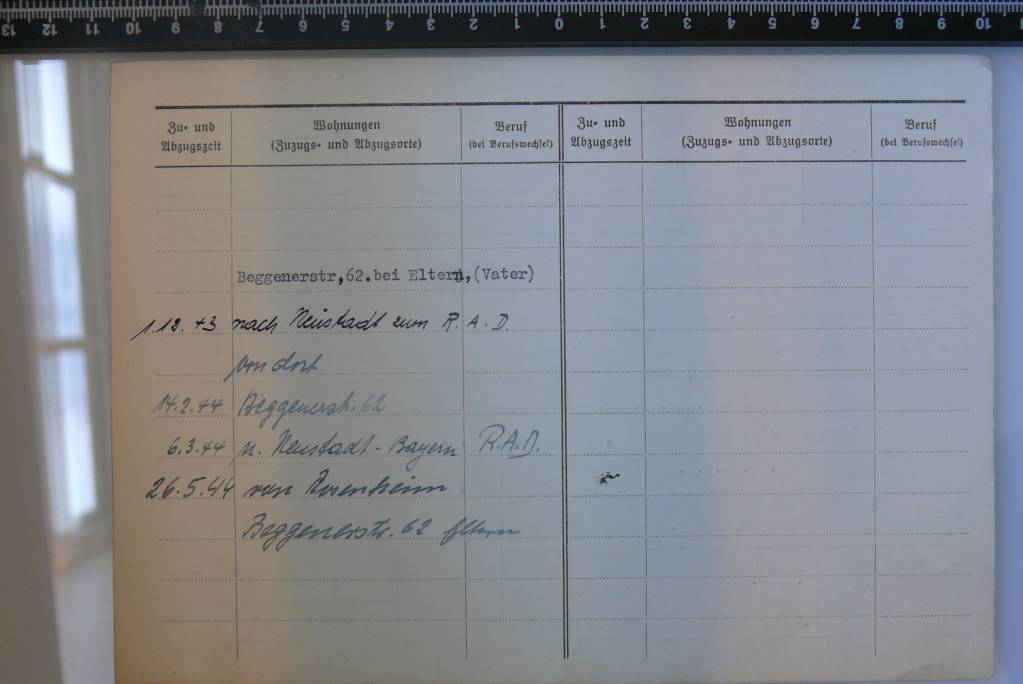 13 12 11 10 9 8 7 6 5 4 3 2 1 0 1 2 3 4 5 6 7 8 9 10
Zu- und Abzugszeit
Wohnungen (Zuzugs- und Abzugsorte)
Beruf (bei Berufswechsel)
Zu- und Abzugszeit
Wohnungen (Zuzugs- und Abzugsorte)
Beruf (bei Berufswechsel)
Beggenerstr,62.bei Eltern,(Vater)
1.12.43 nach Neustadt zum R.A.D.
von dort
14.2.44 Beggenerstr.62
6.3.44 n. Neustadt-Bayern R.A.D.
26.5.44 von Rosenheim
Beggenerstr.62 Eltern